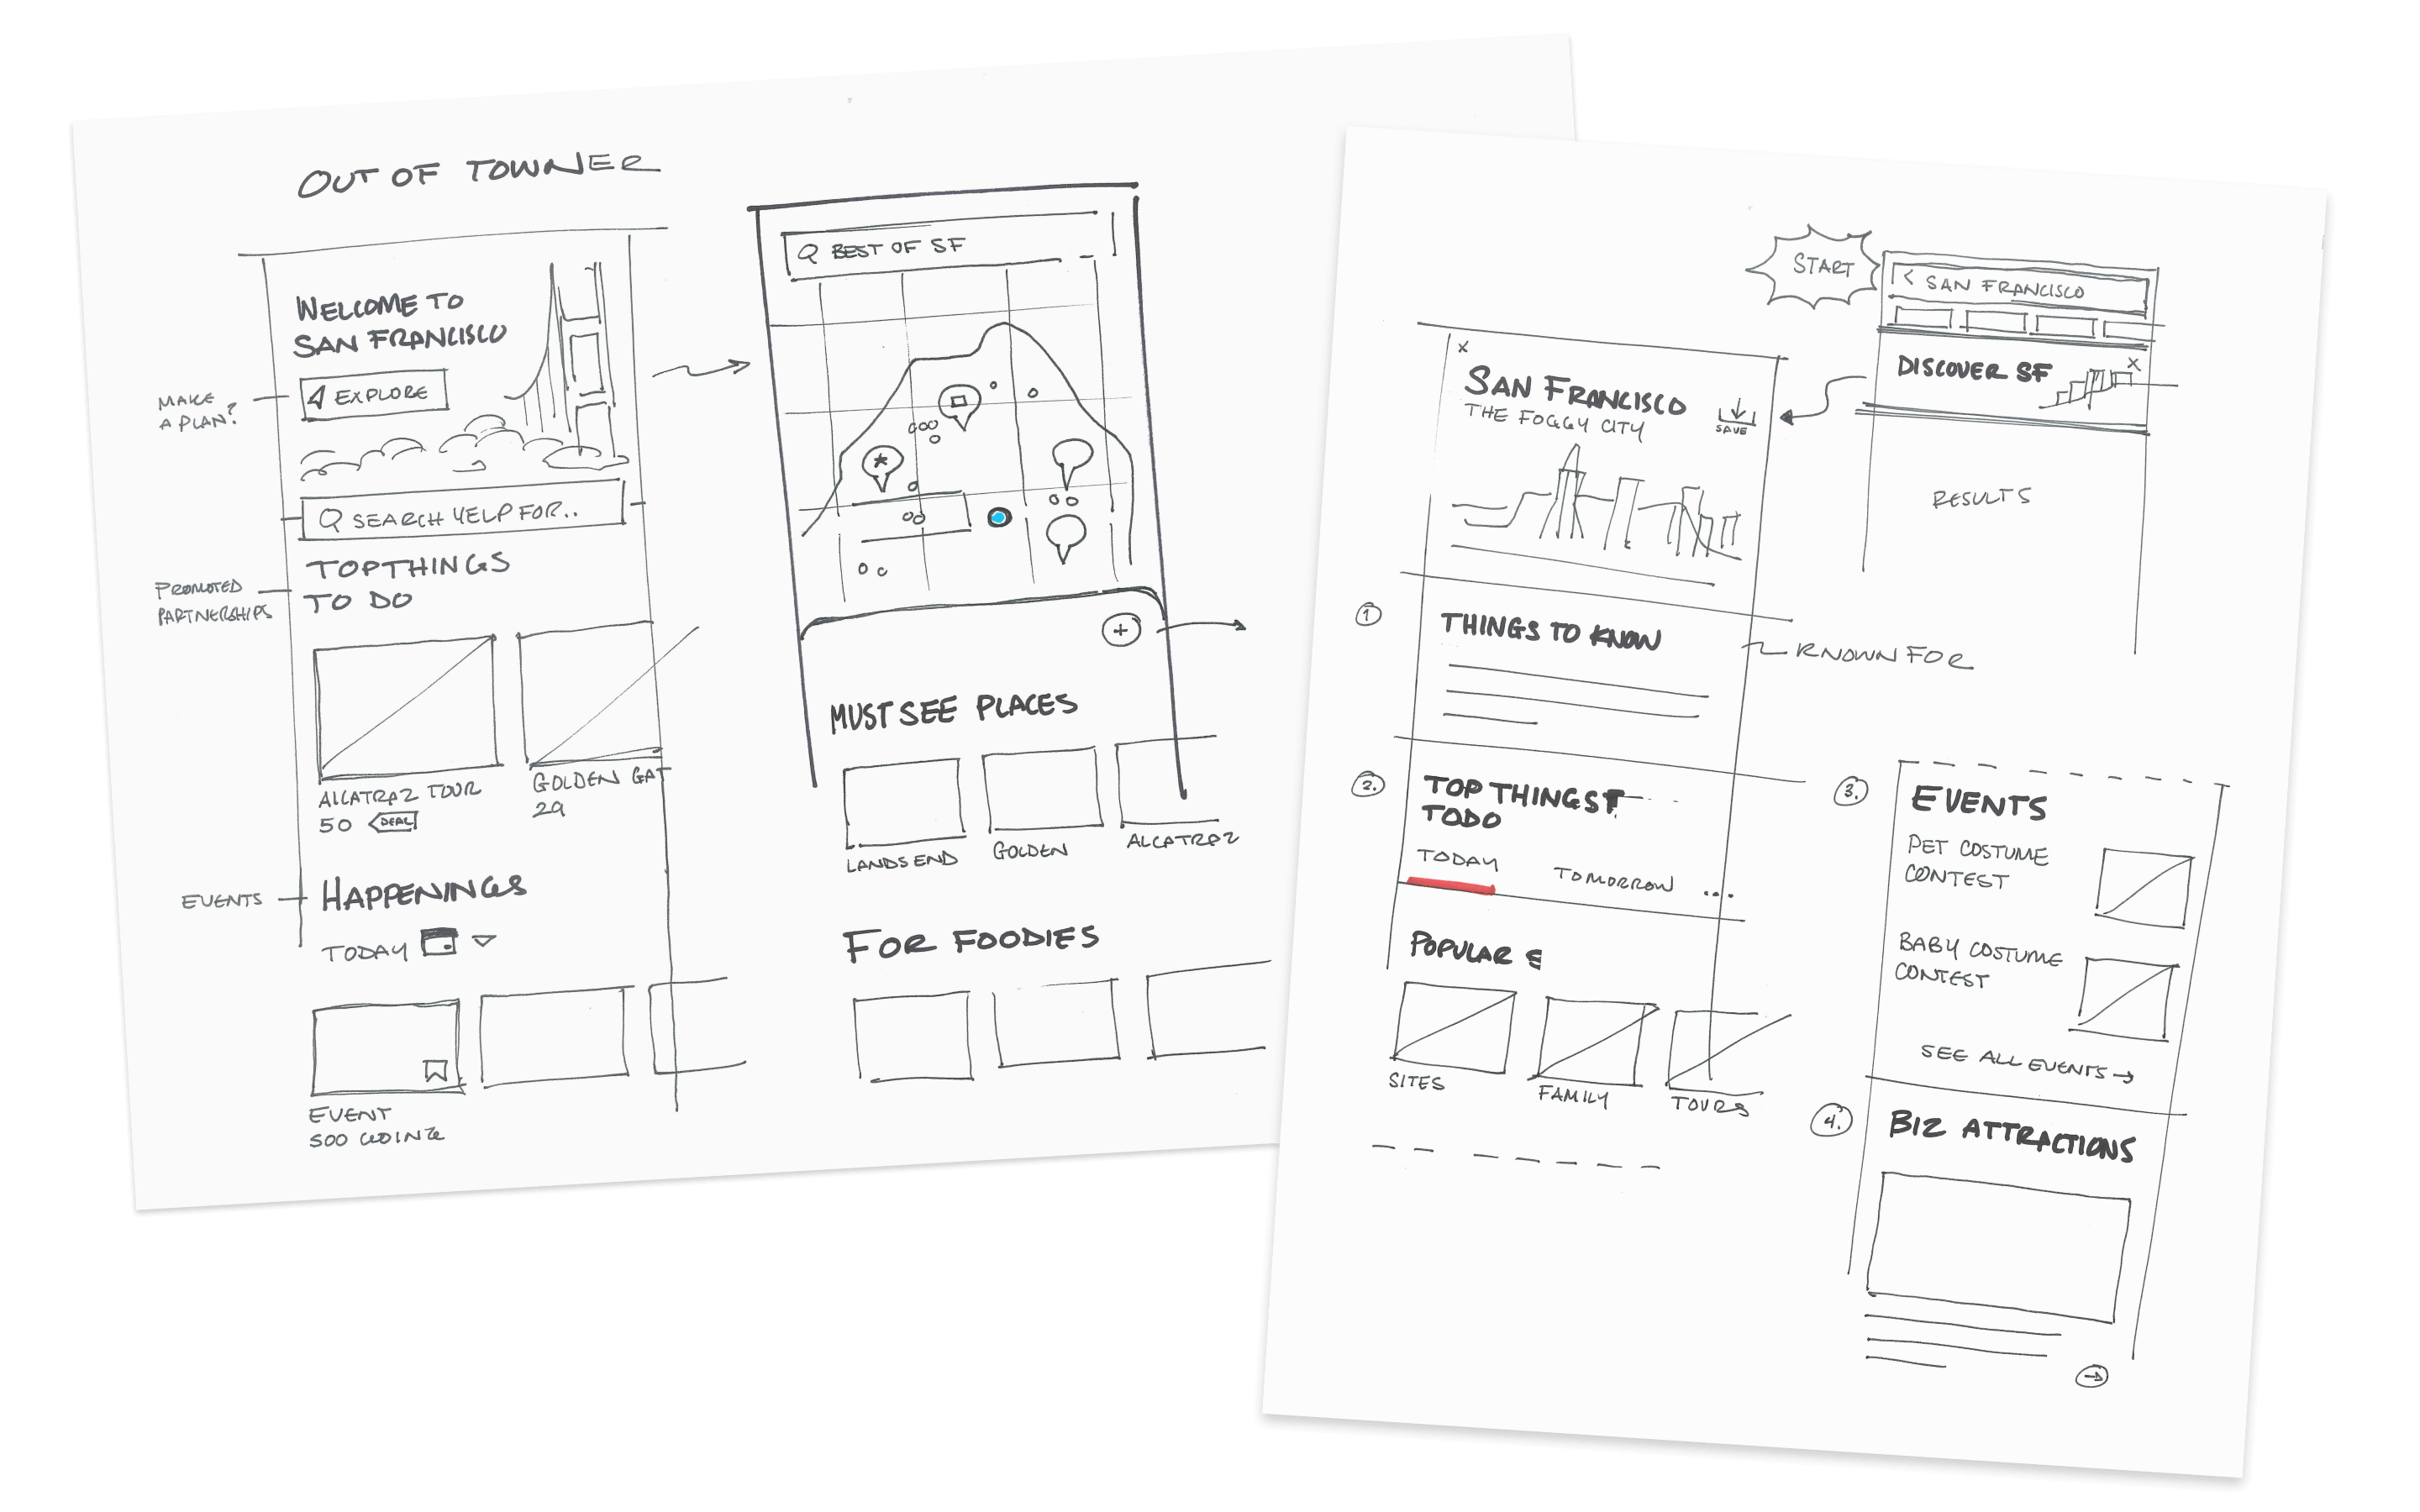 OUT OF TOWNER
WELCOME TO
SAN FRANCISCO
EXPLORE
MAKE
A PLAN?
SEARCH YELP FOR..
TOP THINGS
TO DO
PROMOTED
PARTNERSHIPS
ALCATRAZ TOUR
50 DEAL
GOLDEN GAT
29
EVENTS
HAPPENINGS
TODAY
EVENT
500 GOING
BEST OF SF
MUST SEE PLACES
LANDS END
GOLDEN
ALCATRAZ
FOR FOODIES
START
< SAN FRANCISCO
DISCOVER SF X
RESULTS
X
SAN FRANCISCO
THE FOGGY CITY
SAVE
1
THINGS TO KNOW
KNOWN FOR
2.
TOP THINGS T
TODO
TODAY
TOMORROW ...
POPULAR E
SITES
FAMILY
TOURS
3.
EVENTS
PET COSTUME
CONTEST
BABY COSTUME
CONTEST
SEE ALL EVENTS →
4.
BIZ ATTRACTIONS